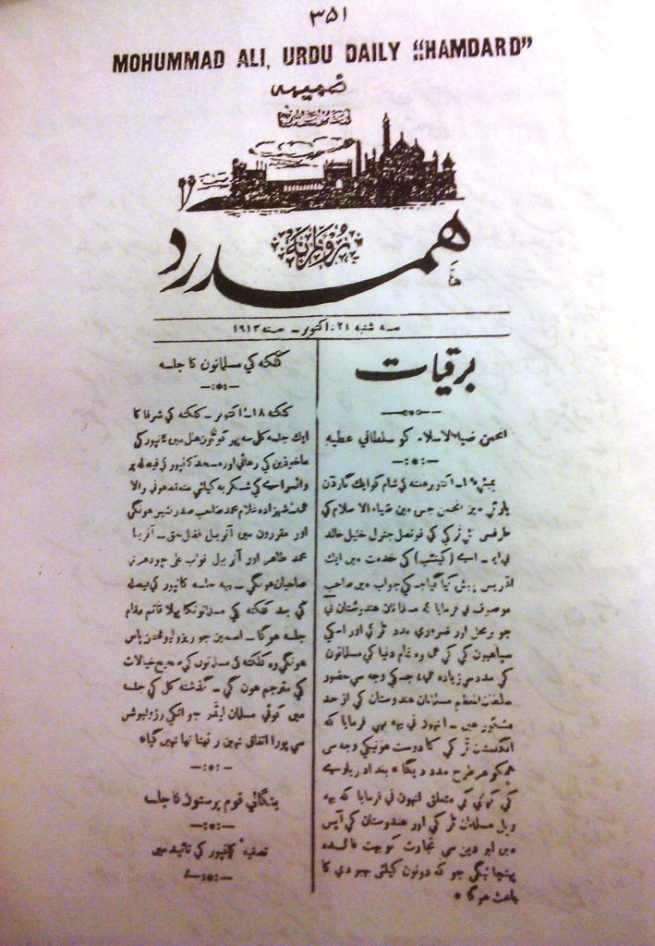 ۳۵۱
MOHUMMAD ALI, URDU DAILY "HAMDARD"
ضمیمہ
روزانہ
ہمدرد
سہ شنبہ ۲۱- اکتوبر - سنہ ۱۹۱۳
برقیات
انجمن ضیاءالاسلام کو سلطانی عطیہ
اکتوبر ہفتہ کی شام کو ایک گارڈن
پارٹی میں انجمن جس میں ضیاء الاسلام کی
طرف سے ٹرکی کی قونصل جنرل خلیل خالد
بی اے - ایم اے (کینٹب) کی خدمت میں ایک
اڈریس پیش کیا گیا جس کی جواب میں صاحب
موصوف نی فرمایا کہ مسلمانان ہندوستان نی
جو برمحل اور ضروری مدد ٹرکی اور اسکی
سپاہیوں کی کی وہ تمام دنیا کی مسلمانوں
کی مدد سی زیادہ ہی، جسکی وجہ سی حضور
سلطان المعظم مسلمانان ہندوستان کی از حد
مشکور ہیں - انہوں نی یہہ بہی فرمایا کہ
انگلستان ٹرکی کا دوست ہونیکی وجہ سی
ہمکو ہر طرح مدد دیگا
کی متعلق انہوں نی فرمایا کہ یہہ
ریل مسلمانان ٹرکی اور ہندوستان کی آپس
میں تجارت کو بہت فائدہ
پہنچائیگی جو کہ دونوں کیلئی بہبودی کا
باعث ہوگا *
کلکتہ کی مسلمانوں کا جلسہ
کلکتہ ۱۸- اکتوبر - کلکتہ کی شرفا کا
ایک جلسہ کل سہ پہر کو ٹون ہال میں کانپور کی
ماخوذین کی رہائی اور مسجد کانپور کی فیصلہ پر
وائسرائے کی شکریہ کیلئی منعقد ہونی والا
ہے شہزادہ غلام محمد صاحب صدر نشیں ہونگی
اور مقررون میں آنریبل فضل حق - آنریبل
محمد طاہر اور آنریبل نواب علی چودھری
صاحبان ہونگی - یہہ جلسہ کانپور کی فیصلہ
کی بعد کلکتہ کی مسلمانونکا پہلا قائم مقام
جلسہ ہوگا - اسمیں جو ریزولیوشن پاس
ہونگی وہ کلکتہ کی مسلمانوں کی صحیح خیالات
کی مترجم ہون گی - گذشتہ کل کی جلسہ
میں کوئی مسلمان لیڈر جو انکی رزولیوشن
سی پورا اتفاق نہیں رکھتا تھا نہیں گیا *
بنگالی قوم پرستوں کا جلسہ
تصفیہ کانپور کی تائید میں